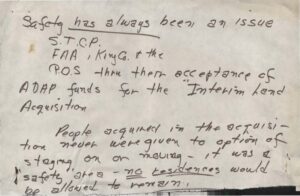 Safety has always been an issue
S.T.C.P.
FAA, King Co. & the
POS thru their acceptance of
ADAP funds for the "Interim Land
Acquisition
People acquired in the acquisi-
tion never were given to option of
staying on or moving - it was a
"safety" area - no residences would
be allowed to remain.